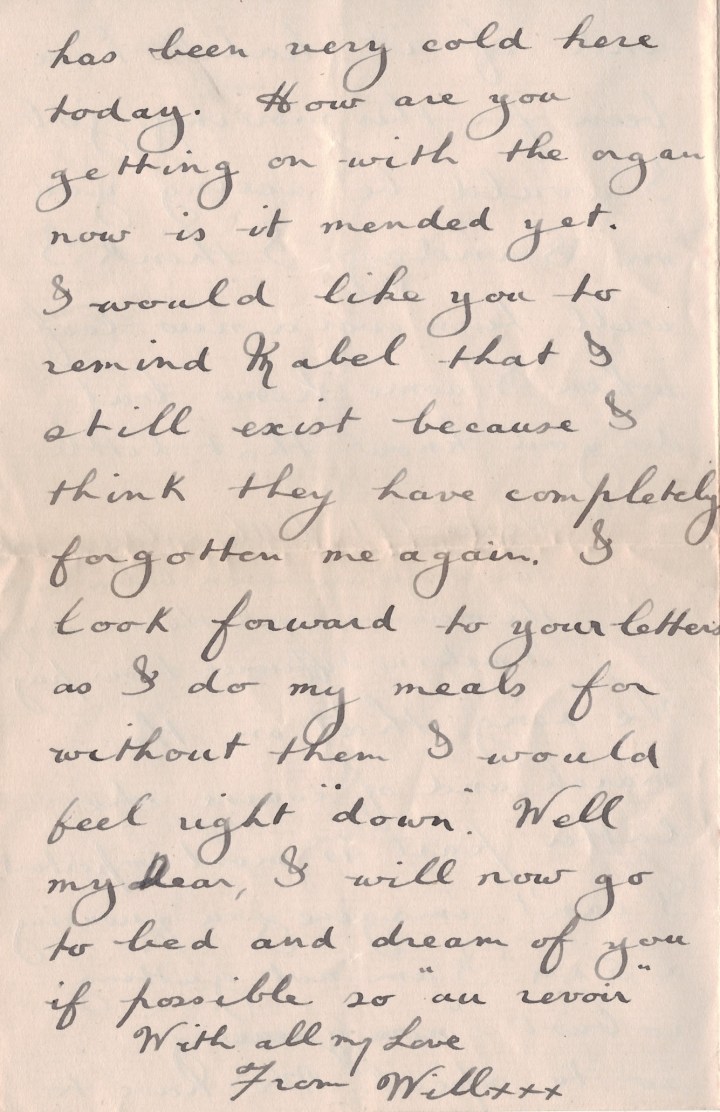 has been very cold here
today. How are you
getting on with the organ
now is it mended yet.
I would like you to
remind Mabel that I
still exist because I
think they have completely
forgotten me again. I
look forward to your letters
as I do my meals for
without them I would
feel right "down". Well
my Dear, I will now go
to bed and dream of you
if possible so "au revoir"
With all my Love
From Will xxx